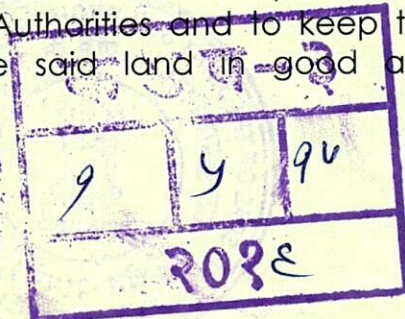 Authorities and to keep t
e said land in good a
२
१ ५ १५
२०१६